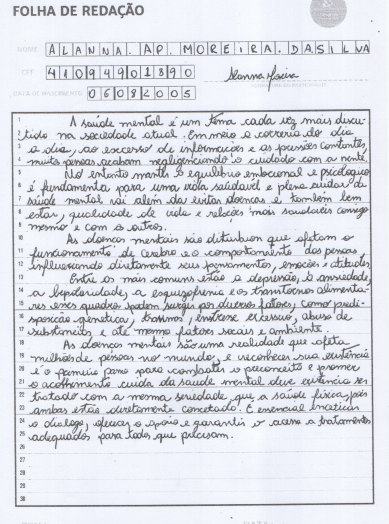 FOLHA DE REDAÇÃO
NOME ALANNA. AP. MOREIRA. DA SILVA
CPF 41094901890
DATA DE NASCIMENTO 06082005
1 A saúde mental é um tema cada vez mais discu-
2 tido na sociedade atual. Em meio a correria do dia
3 a dia, ao excesso de informações e as pressões constantes,
4 muitas pessoas acabam negligenciando o cuidado com a mente.
5 No entanto manter o equilíbrio emocional e psicologico
6 é fundamenta para uma vida saúdavel e plena cuidar da
7 saúde mental vai além das evitar doenças é também bem
8 estar, qualidade de vida e relações mais saudaveis consigo
9 mesmo e com os outros.
10 As doenças mentais são disturbios que afetam o
11 funcionamento do cerebro e o comportamento das pessoas,
12 influenciando diretamente seus pensamentos, emoções e atitudes
13 Entre os mais comuns estão a depressão, a ansiedade,
14 a bipolaridade, a esquizofrenia e os transtornos alimenta-
15 res esses quadros podem surgir por diversos fatores, como predi-
16 sposição genética, traumas, estresse excessivo, abuso de
17 substancias e até mesmo fatores sociais e ambiente.
18 As doenças mentais são uma realidade que afeta
19 milhões de pessoas no mundo, e reconhecer sua existência
20 é o primeiro passo para combater o preconceito e promover
21 o acolhimento cuida da saude mental deve ser
22 tratado com a mesma seriedade que a saúde fisica, pois
23 ambas estão diretamente conectado. É essencial
24 o dialogo, oferecer o apoio e garantir o acesso a tratamentos
25 adequados para todos que precisam.
26
27
28
29
30